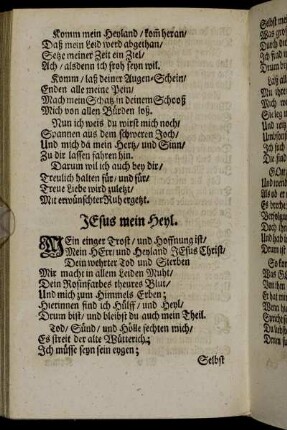 Komm mein Heyland / kom̃ heran /
Daß mein Leid werd abgethan /
Setze meiner Zeit ein Ziel /
Ach / alsdenn ich froh seyn wil.
Komm / laß deiner Augen-Schein /
Enden alle meine Pein /
Mach mein Schatz in deinem Schooß
Mich von allen Bürden loß.
Nun ich weis du wirst mich noch /
Spannen aus dem schweren Joch /
Und mich da mein Hertz / und Sinn /
Zu dir lassen fahren hin.
Darum wil ich auch bey dir /
Treulich halten für / und für /
Treue Liebe wird zuletzt /
Mit erwünschter Ruh ergetzt.
JEsus mein Heyl.
MEin einger Trost / und Hoffnung ist /
Mein HErr / und Heyland JEsus Christ /
Dein wehrter Tod und Sterben
Mir macht in allem Leiden Muht /
Dein Rosinfarbes theures Blut /
Und mich zum Himmels Erben;
Hierinnen find ich Hülff / und Heyl /
Drum bist / und bleibst du auch mein Theil.
Tod / Sünd / und Hölle fechten mich /
Es streit der alte Wütterich;
Ich müsse seyn sein eygen;
Selbst